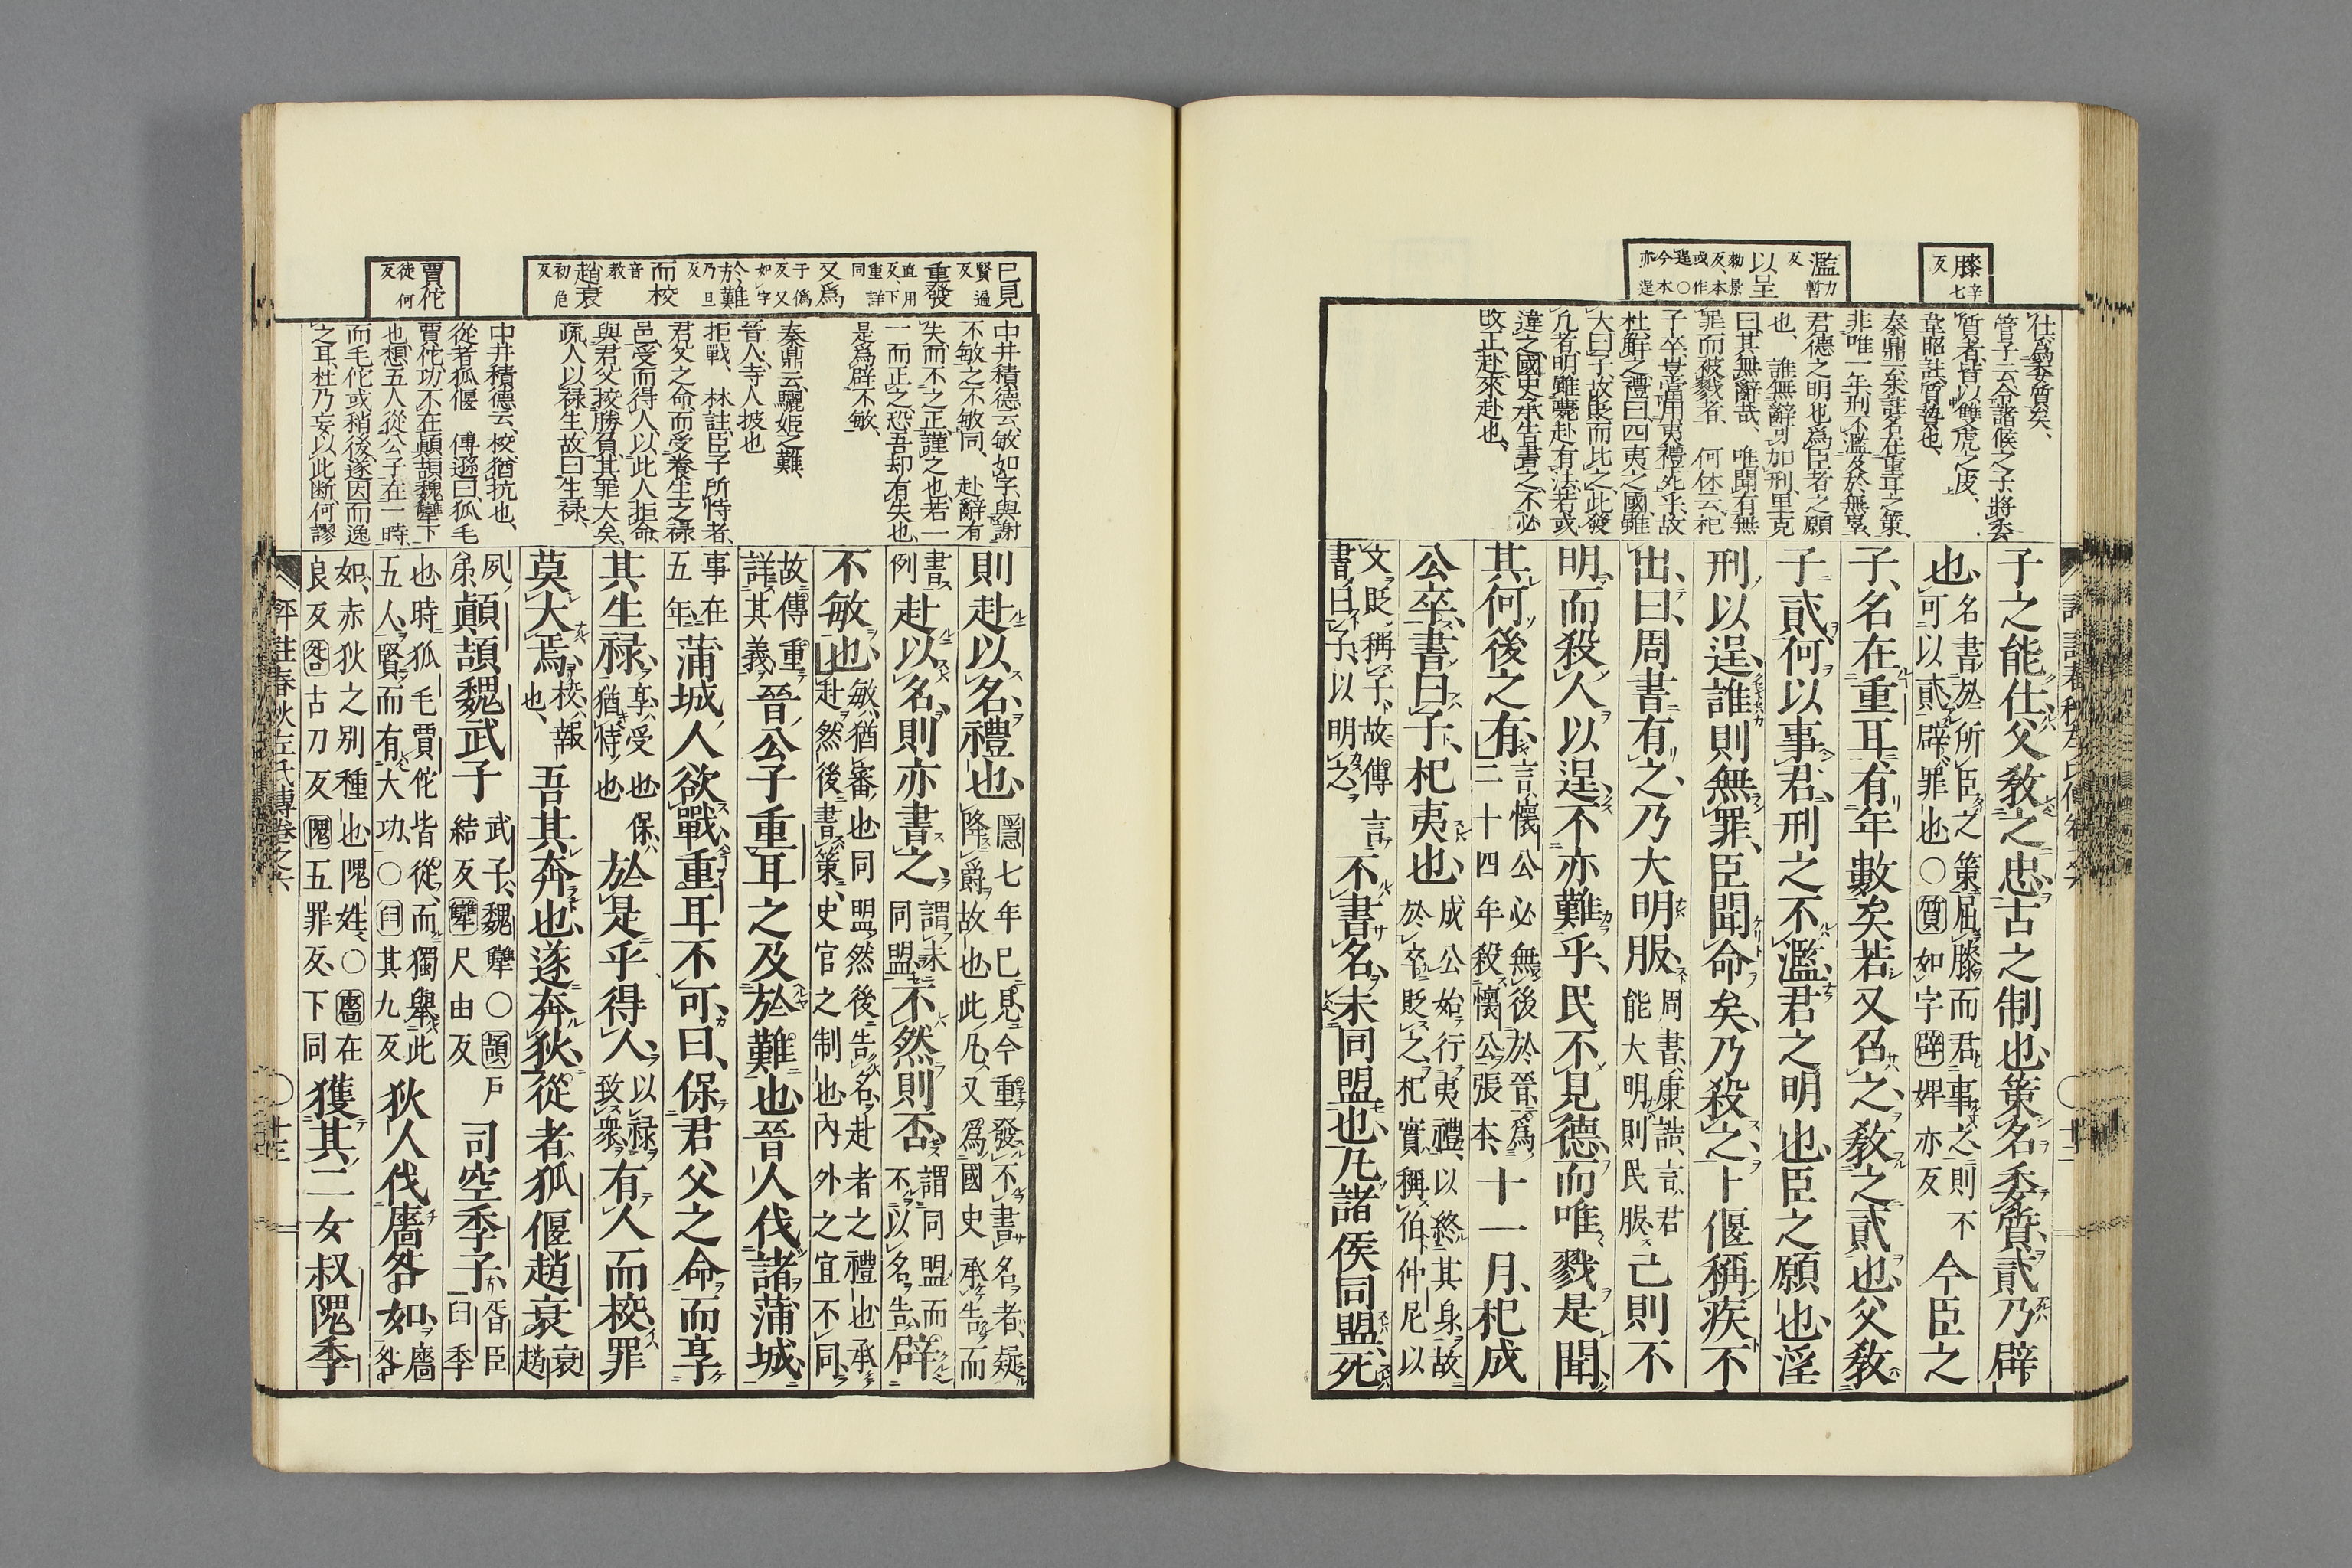 膝辛七
反
濫力暫
反
以呈
勑景
反、本
或作
逞〇
今本
亦逞
仕爲委質矣、
管子云令諸侯之子將委
質者、皆以雙虎之皮、
韋昭註質贄也、
秦鼎云朱註名在重耳之策、
非唯一年刑不濫及於無辠、
君德之明也爲臣者之願
也、誰無辭可加刑、里克
曰其無辭哉、唯聞有無
罪而被戮者、何休云杞
子卒豈當用夷禮死乎、故
杜解之禮曰四夷之國、雖
大曰子、故貶而此之、此發
凡者明雖薨赴有法、若或
違之、國史承告書之、不必
改正、赴來赴也、
子之能仕、父敎之忠、古之制也、策名委質、貳乃辟
也、名書於所臣之策、屈膝而君事之、則不
可以貳、辟罪也〇質如字辟婢亦反
今臣之
子、名在重耳、有年數矣、若又召之、敎之貳也、父敎
子貳、何以事君、刑之不濫、君之明也、臣之願也、淫
刑以逞、誰則無罪、臣聞命矣、乃殺之、卜偃稱疾不
出、曰、周書有之、乃大明服、
周書、康誥、言君
能大明則民服
己則不
明、而殺人以逞、不亦難乎、民不見德、而唯戮是聞、
其何後之有、
言、懷公必無後於晉、爲
二十四年殺懷公張本、
十一月、杞成
公卒、書曰子、杞夷也、
成公始行夷禮、以終其身、故
於卒貶之、杞實稱伯、仲尼以
文貶稱子、故傳言
書曰子、以明之
不書名、未同盟也、凡諸侯同盟、死
評註春秋左氏傳卷之六
十二
已見
賢遍
反
重發
直用
反、下
重詳
同
又爲
于僞
反又
如字
於難
乃旦
反
而校
音
教
趙衰
初危
反
賈佗
徒何
反
中井積德云、敏如字、與謝
不敏之不敏同、赴辭有
失、而不之正、謹之也、若一
一而正之、恐吾却有失也、
是爲辟不敏、
秦鼎云、驪姬之難、
晉人、寺人披也
拒戰、林註、臣子所恃者、
君父之命、而受養生之祿
邑、受而得人、以此人拒命、
與君父挍勝負、其罪大矣、
疏、人以祿生、故曰生祿、
中井積德云、校、猶抗也、
從者狐偃 傳遜曰、狐毛
賈佗功不在顚頡魏犨下
也、想五人從公子在一時、
而毛佗或稍後、遂因而逸
之耳、杜乃妄以此断、何謬
則赴以名、禮也、
隱七年已見、今重發不書名者、疑
降爵、故也、此凡、又爲國史承告而
書
例
赴以名、則亦書之、
謂未
同盟
不然則否、
謂同盟而
不以名告
辟
不敏也、
敏、猶審也、同盟然後告名、赴者之禮也、承
赴然後書策、史官之制也、內外之宜不同、
故傳重
詳其義
晉公子重耳之及於難也、晉人伐諸蒲城、
事在
五年
蒲城人欲戰、重耳不可、曰、保君父之命、而享
其生祿、
享、受也、保、
猶恃也
於是乎得人、
以祿
致衆
有人而校、罪
莫大焉、
校、報
也、
吾其奔也、遂奔狄、從者狐偃趙衰
衰
趙
夙
弟
顚頡魏武子
武子、魏犨〇頡戶
結反犨尺由反
司空季子、
胥臣
臼季
也、時狐毛賈佗皆從、而獨舉此
五人、賢而有大功、〇臼其九反
狄人伐廧咎如、
廧
咎
如、赤狄之別種也、隗姓、〇廧在
良反咎古刀反隗五罪反、下同
獲其二女叔隗季
評註春秋左氏傳卷之六
十三